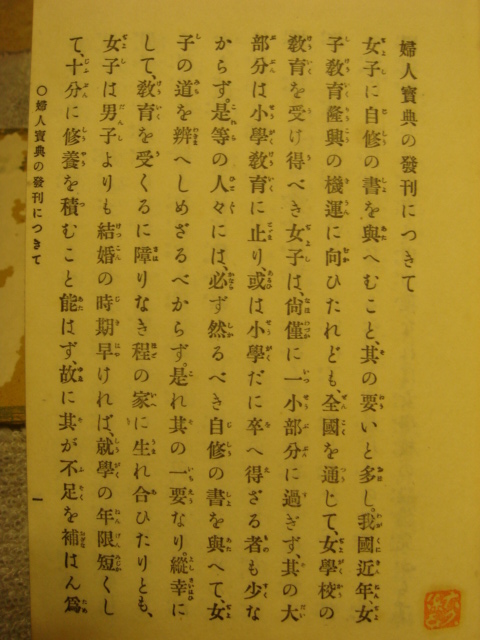 婦人寳典の發刊につきて
女子に自修の書を與へむこと、其の要いと多し。我國近年女
子敎育隆興の機運に向ひたれども、全國を通じて、女學校の
敎育を受け得べき女子は、尙僅に一小部分に過ぎず、其の大
部分は小學敎育に止り、或は小學だに卒へ得ざる者も少な
からず。是等の人々には、必ず然るべき自修の書を與へて、女
子の道を辨へしめざるべからず。是れ其の一要なり。縱幸に
して、敎育を受くるに障りなき程の家に生れ合ひたりとも、
女子は男子よりも結婚の時期早ければ、就學の年限短くし
て、十分に修養を積むこと能はず、故に其が不足を補はん爲
〇婦人寳典の發刊につきて
一